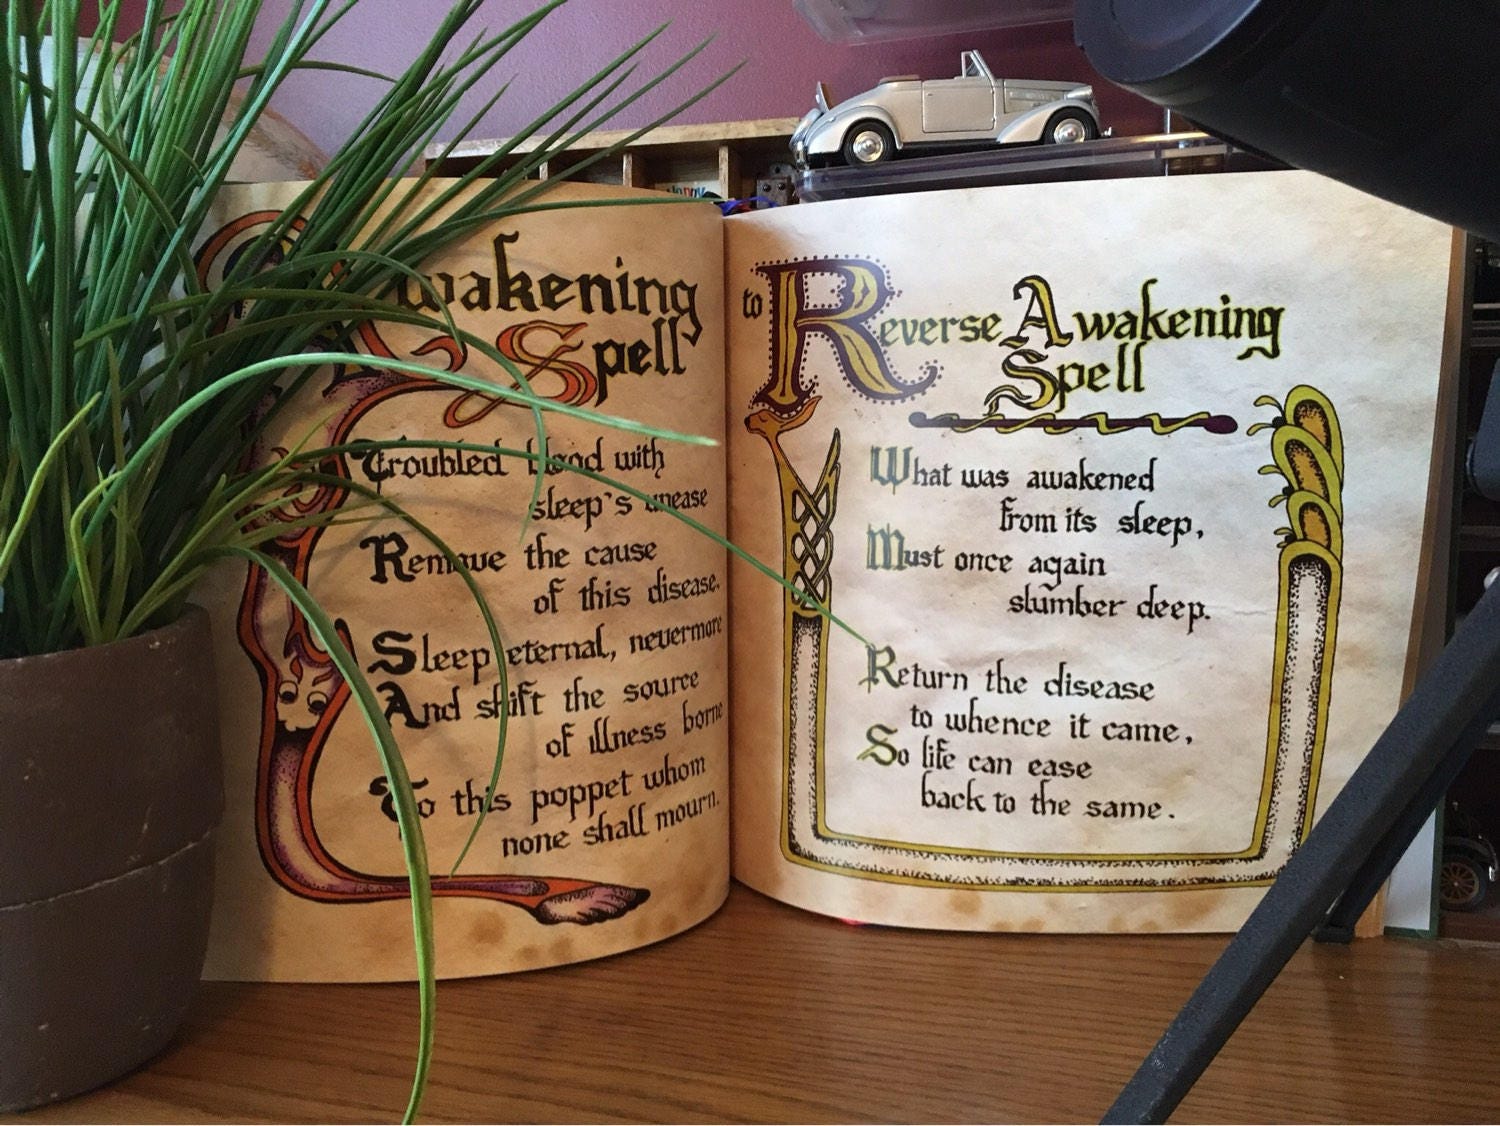 Awakening
Spell
Troubled blood with
sleep's unease
Remove the cause
of this disease.
Sleep eternal, nevermore
And shift the source
of illness borne
To this poppet whom
none shall mourn.
to Reverse Awakening
Spell
What was awakened
from its sleep,
Must once again
slumber deep.
Return the disease
to whence it came,
So life can ease
back to the same.